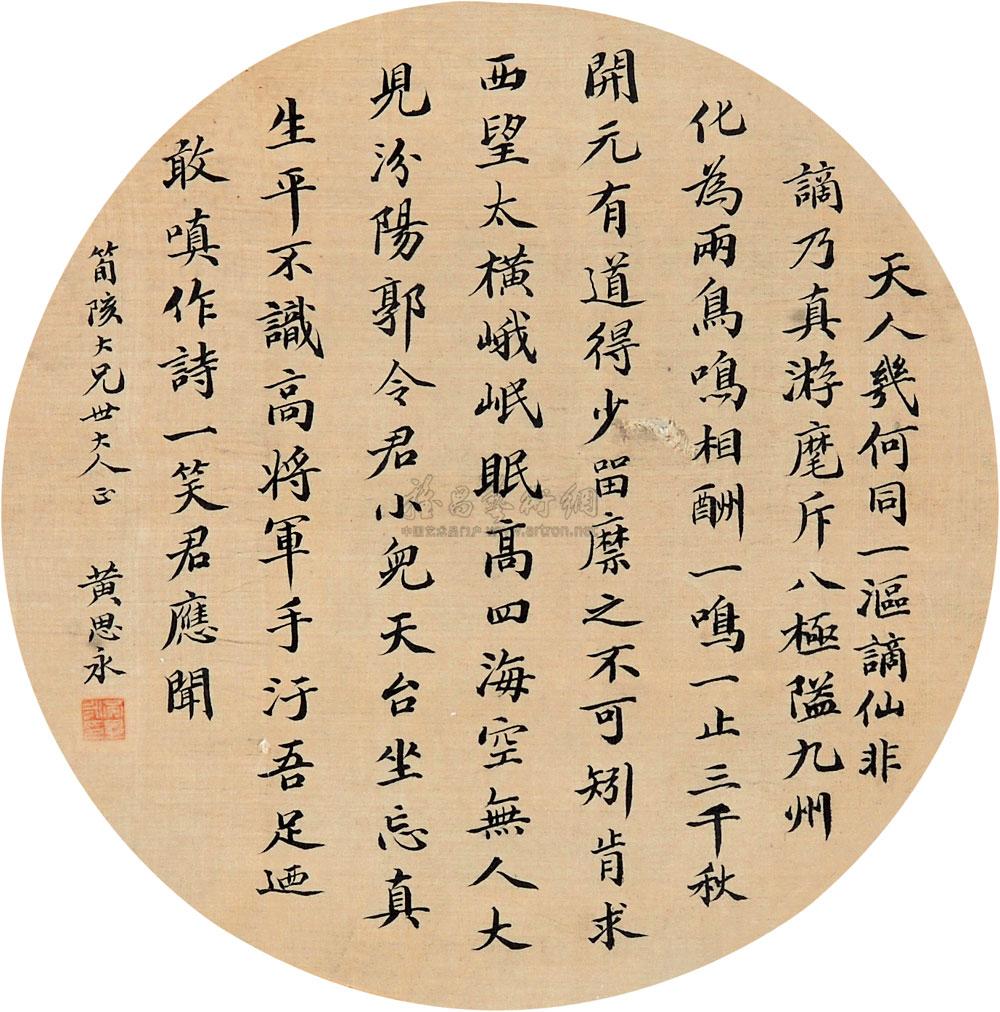 天人幾何同一漚謫仙非
謫乃真游麾斥八極隘九州
化為兩鳥鳴相酬一鳴一止三千秋
開元有道得少留縻之不可矧肯求
西望太橫峨岷眠高四海空無人大
兒汾陽郭令君小兒天台坐忘真
生平不識高將軍手汙吾足迺
敢嗔作詩一笑君應聞
筍陔大兄世大人正
黃思永
中国艺术品门户 www.artron.net